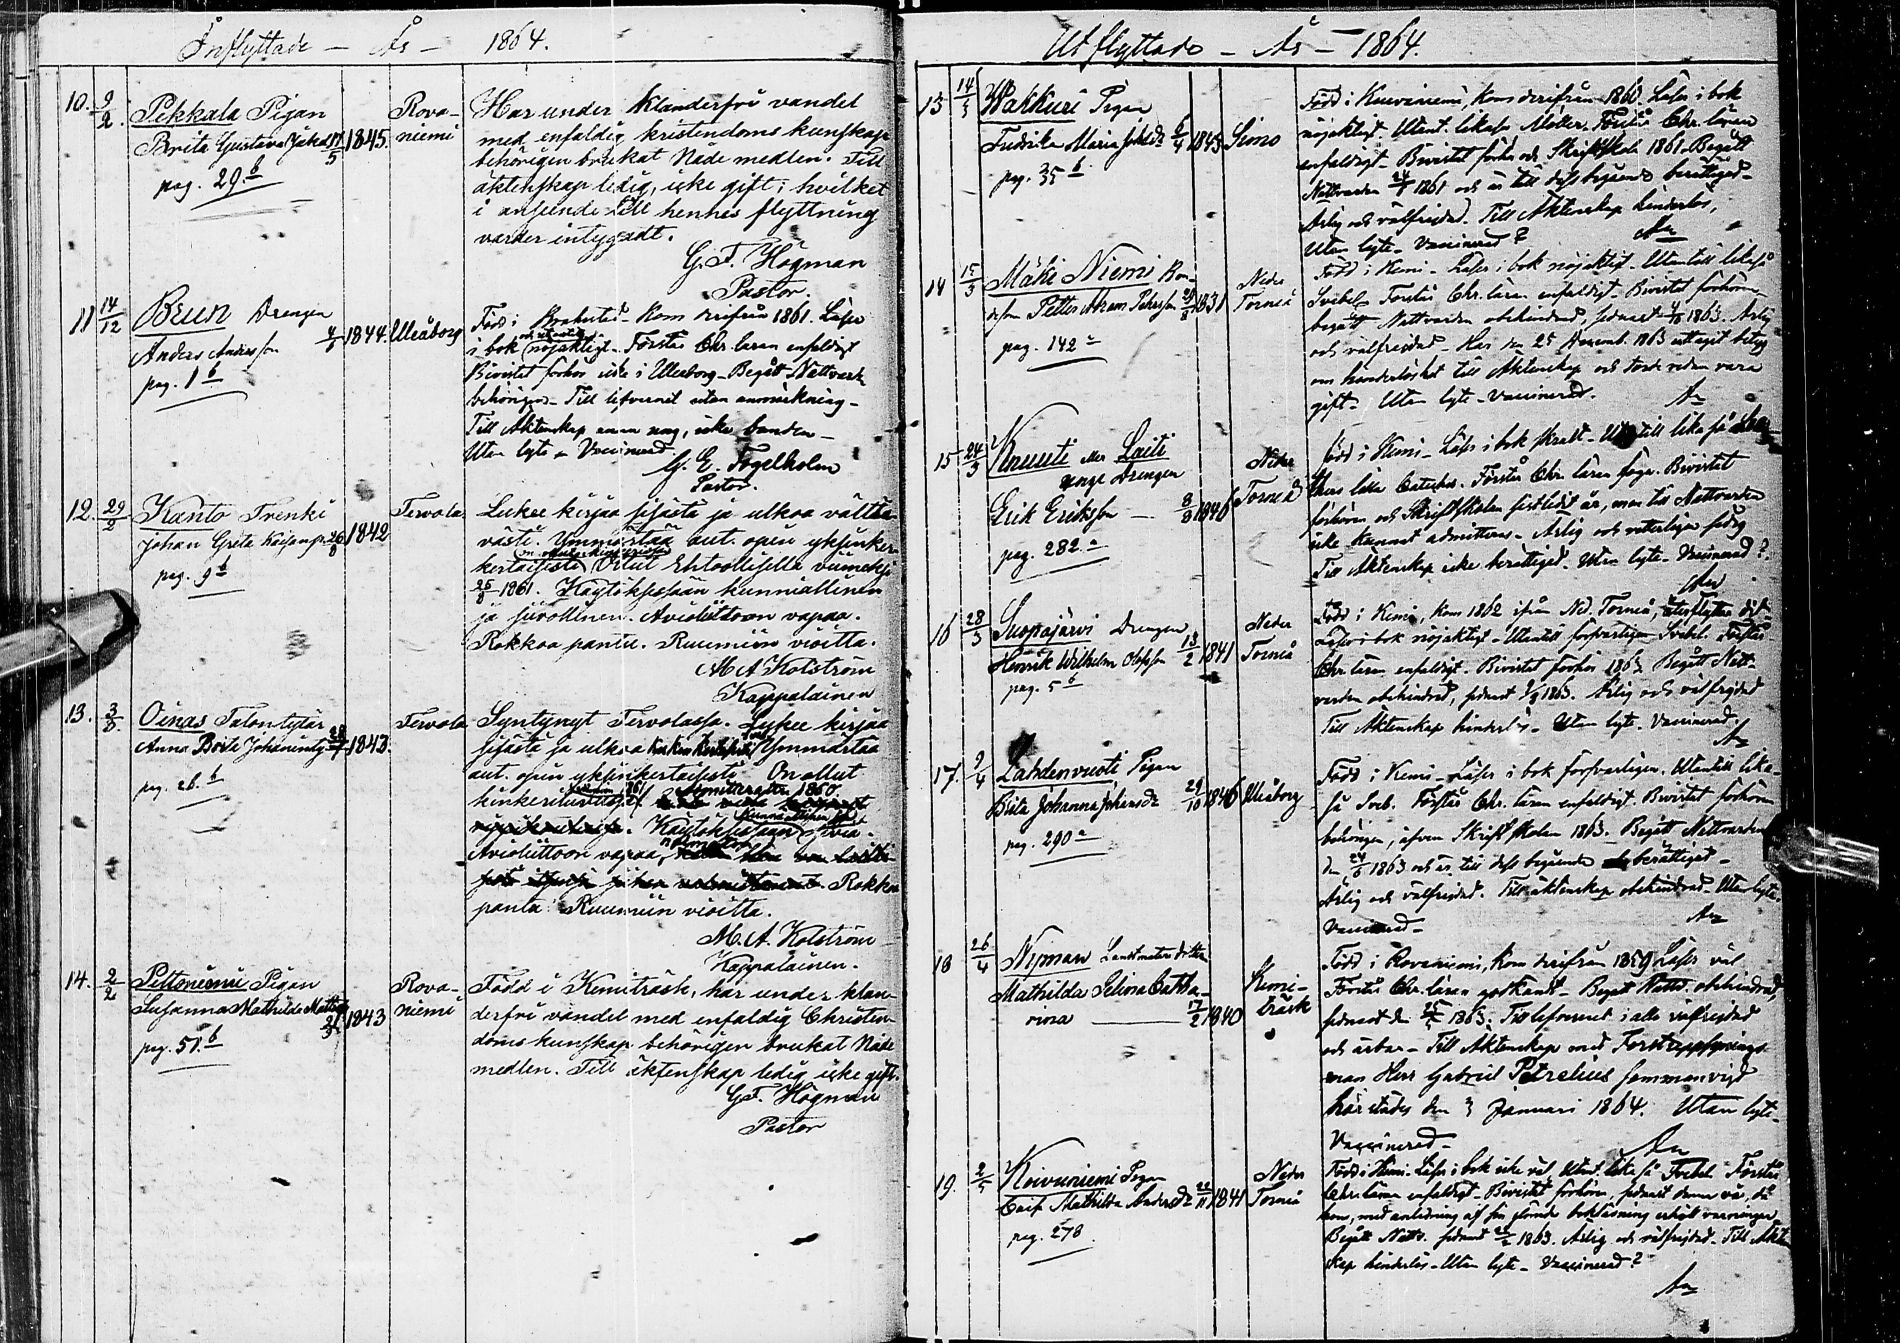 Inflyttade — År — 1864.
10. 9/2 Pekkala Pigan
Brita Gustava Jakobsd 17/5 1845.
pag. 29.b
Rova-
niemi
Har under klanderfri vandel
med enfaldig kristendoms kunskap
behörigen brukat Nåde medlen. Till
äktenskap ledig, icke gift; hvilket
i anseende till hennes flyttning
varder intygadt.
G. F. Högman
Pastor.
11 14/12 Brun Drengen
Anders Andersson 1844.
pag. 1 b
Uleåborg
Född i Brahestad. Kom derifrån 1861. Läser
i bok nöjaktigt. Förstår Chr. läran enfaldigt
Bivistat förhör icke i Uleåborg. Begått Nattvard
behörigen. Till lefvernet utan anmärkning.
Till Äktenskap icke bunden.
Utan lyte. Vaccinerad.
G. E. Fogelholm
Pastor.
12. 29/2 Kanto Trenki
Johan Greta 1842
pag. 9 b
Tervola
Lukee kirjaa sisästä ja ulkoa vältä-
västi. Ymmärtää aut. opin yksinker-
kertaisesti Ollut Ehtoollisella viimeksi
1861. Käytöksessään kunniallinen
ja siivollinen. Avioliittoon vapaa.
Rokkoa pantu. Ruumiin vioitta.
M A Kolström
Kappalainen
13. 3/3. Oinas Talontytär
Anna Brita Johanint. 1843.
pag. 26. b
Tervola
Syntynyt Tervolassa. Lukee kirjaa
sisästä ja ulkoa Ymmärtää
aut. opin yksinkertaisesti On ollut
1860.
Käytöksessään
Avioliittoon vapaa,
Rokko
pantu. Ruumiin vioitta.
M. A. Kolström
Kappalainen.
14. 2/2 Peltoniemi Pigan
Susanna Mathilda Mattsd 1843
pag. 51. b
Rova-
niemi
Född i Kemiträsk, har under klan-
derfri vandel med enfaldig Christen-
doms kunskap behörigen brukat Nåde
medlen. Till äktenskap ledig, icke gift.
G F. Högman
Pastor
Utflyttade — År — 1864.
13 14/3 Wakkuri Pigan
Fredrika Maria Johsdr 6/4 1843
pag. 35 b
Simo
Född i Kuivaniemi, kom derifrån 1860. Läser i bok
nöjaktigt. Utant. likaså Möller. Förstår Chr. läran
enfaldigt. Bivistat förhör och Skriftskola 1861. Begått
Nattvarden 1861 och är till dess begående berättigad.
Ärlig och välfrejdad. Till Äktenskap hinderlös,
Utan lyte. Vaccinerad?
14 15/3 Mäki Niemi Bon-
deson Petter Abram Petersson 1831
pag. 142 a
Neder
Torneå
Född i Kemi. Läser i bok nöjaktigt. Utantill likaså
Svebel. Förstår Chr. läran enfaldigt. Bivistat förhören
begått Nattvarden obehindrad, sednast 1863. Ärlig
och välfrejdad. Har den 25 1863 uttagit betyg
om hinderlöshet till Äktenskap och torde redan vara
gift. Utan lyte. Vaccinerad.
15 24/3 Knuuti eller Laiti
unge Drengen
Erik Eriksson — 8/8 1846
pag. 282. a
Neder
Torneå
Född i Kemi. Läser i bok skralt. Utantill lika så
Förstår Chr. läran föga. Bivistat
förhören och Skriftskolan sistlidet år, men till Nattvarden
icke kunnat admitteras. Ärlig och
Till Äktenskap icke berättigad. Utan lyte. Vaccinerad?
16 28/3 Suopajärvi Drengen
Henrik Wilhelm Olofsson 13/2 1841
pag. 5 b
Neder
Torneå
Född i Kemi, kom 1862 ifrån Ned. Torneå, återflyttar dit.
Läser i bok nöjaktigt. Utantill försvarligen Svebel. Förstår
Chr. läran enfaldigt. Bivistat förhör 1863. Begått Natt-
varden obehindrad, sednast 1863. Ärlig och välfrejdad
Till Äktenskap hinderlös. Utan lyte. Vaccinerad.
17. 9/4 Lahdenvuoti Pigan
Brita Johanna Johansdr 29/10 1846
pag. 290 a
Uleåborg
Född i Kemi. Läser i bok försvarligen. Utantill lika
så Sveb. Förstår Chr. läran enfaldigt. Bivistat förhören
behörigen, äfven Skriftskolan 1863. Begått Nattvarden
den 1863 och är till dess begående berättigad.
Ärlig och välfrejdad. Till äktenskap obehindrad. Utan lyte.
Vaccinerad.
18 26/4 Nyman Landtmätare dottern
Mathilda Selina Catha-
rina — 17/2 1840
Kemi-
träsk
Född i Rovaniemi, kom derifrån 1859. Läser väl.
Förstår Chr. läran godkändt. Begått Nattv. obehindrad,
sednast d. 1863. Till lefvernet i allo välfrejdad
och ärbar. Till Äktenskap med Forstuppsynings-
man Herr Gabriel Petrelius sammanvigd
härstädes den 3 Januari 1864. Utan lyte.
Vaccinerad.
19. 2/5 Koivuniemi Pigan
Caisa Mathilda Andersdr 22/11 1841
pag. 278.
Neder
Torneå
Född i Kemi. Läser i bok icke väl. Utant. lika så Svebel. Förstår
Chr. läran enfaldigt. Bivistat förhören, sednast denna vår, då
hon, med anledning af sin boksläsning erhöll varningar,
Begått Nattv. sednast 1863. Ärlig och välfrejdad. Till Äkten-
skap hinderlös. Utan lyte. Vaccinerad?